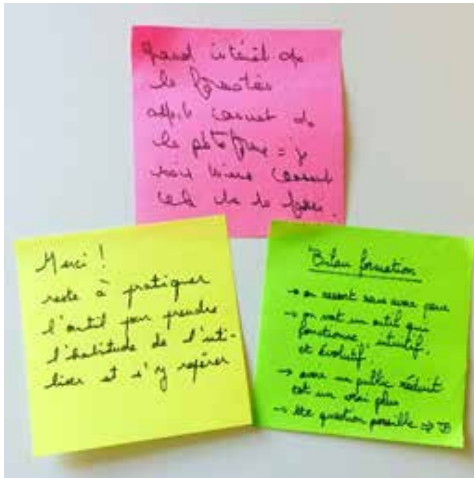 Grand intérêt de
la formation
aspect concret de
la plateforme = je
vois mieux comment
cela va se faire.
Merci !
reste à pratiquer
l'outil pour prendre
l'habitude de l'uti-
liser et s'y repérer
Bilan formation
→ on ressort sans avoir peur
→ on voit un outil qui
fonctionne, intuitif,
et évolutif.
→ avec un public réduit
est un vrai plus
→ tte question possible ⇒